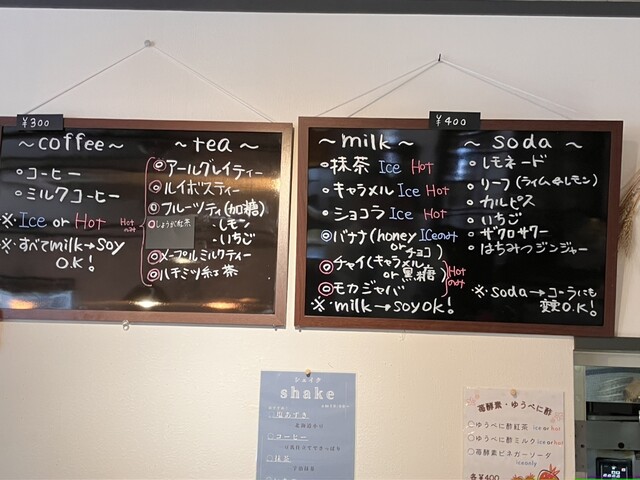 ¥300
~coffee~
。コーヒー
。ミルクコーヒー
※Ice or Hot
※すべてmilk→soy
O.K!
~tea~
◎アールグレイティー
◎ルイボスティー
フルーツティ(加糖)
・レモン
・いちご
Hotのみ
しょうが紅茶
◎メープルミルクティー
◎ハチミツ紅茶
¥400
~milk~
。抹茶 Ice Hot
。キャラメル Ice Hot
。ショコラ Ice Hot
◎バナナ(honey Iceのみ
or チョコ)
◎チャイ(キャラメル
or 黒糖)
◎モカジャバ
Hotのみ
※milk→soy ok!
~soda~
。レモネード
。リーフ(ライム&レモン)
。カルピス
。いちご
。ザクロサワー
。はちみつジンジャー
※soda→コーラにも
変更O.K!
シェイク
shake
塩あずき
コーヒー
抹茶
苺酵素・ゆうべに酢
○ゆうべに酢紅茶 ice or hot
○ゆうべに酢ミルク ice or hot
○苺酵素ビネガーソーダ
ice only
各¥400